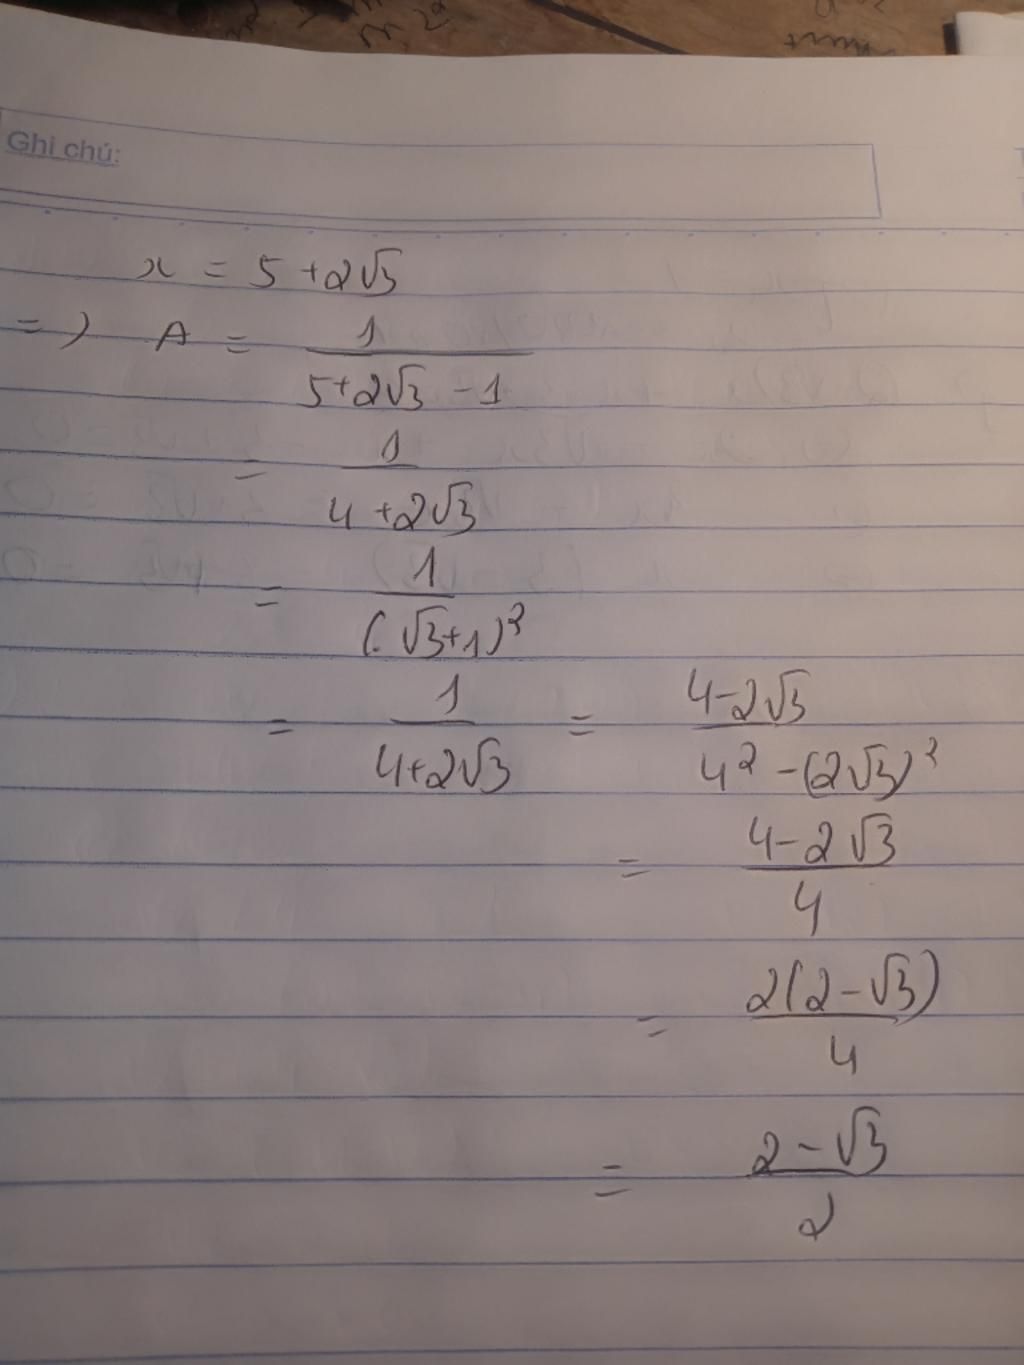 Ghi chú:
x = 5 + 2√3
=> A = 1/(5+2√3 - 1)
= 1/(4 + 2√3)
= 1/(√3+1)²
= 1/(4+2√3) = (4-2√3)/(4² - (2√3)²)
= (4-2√3)/4
= 2(2-√3)/4
= (2-√3)/2